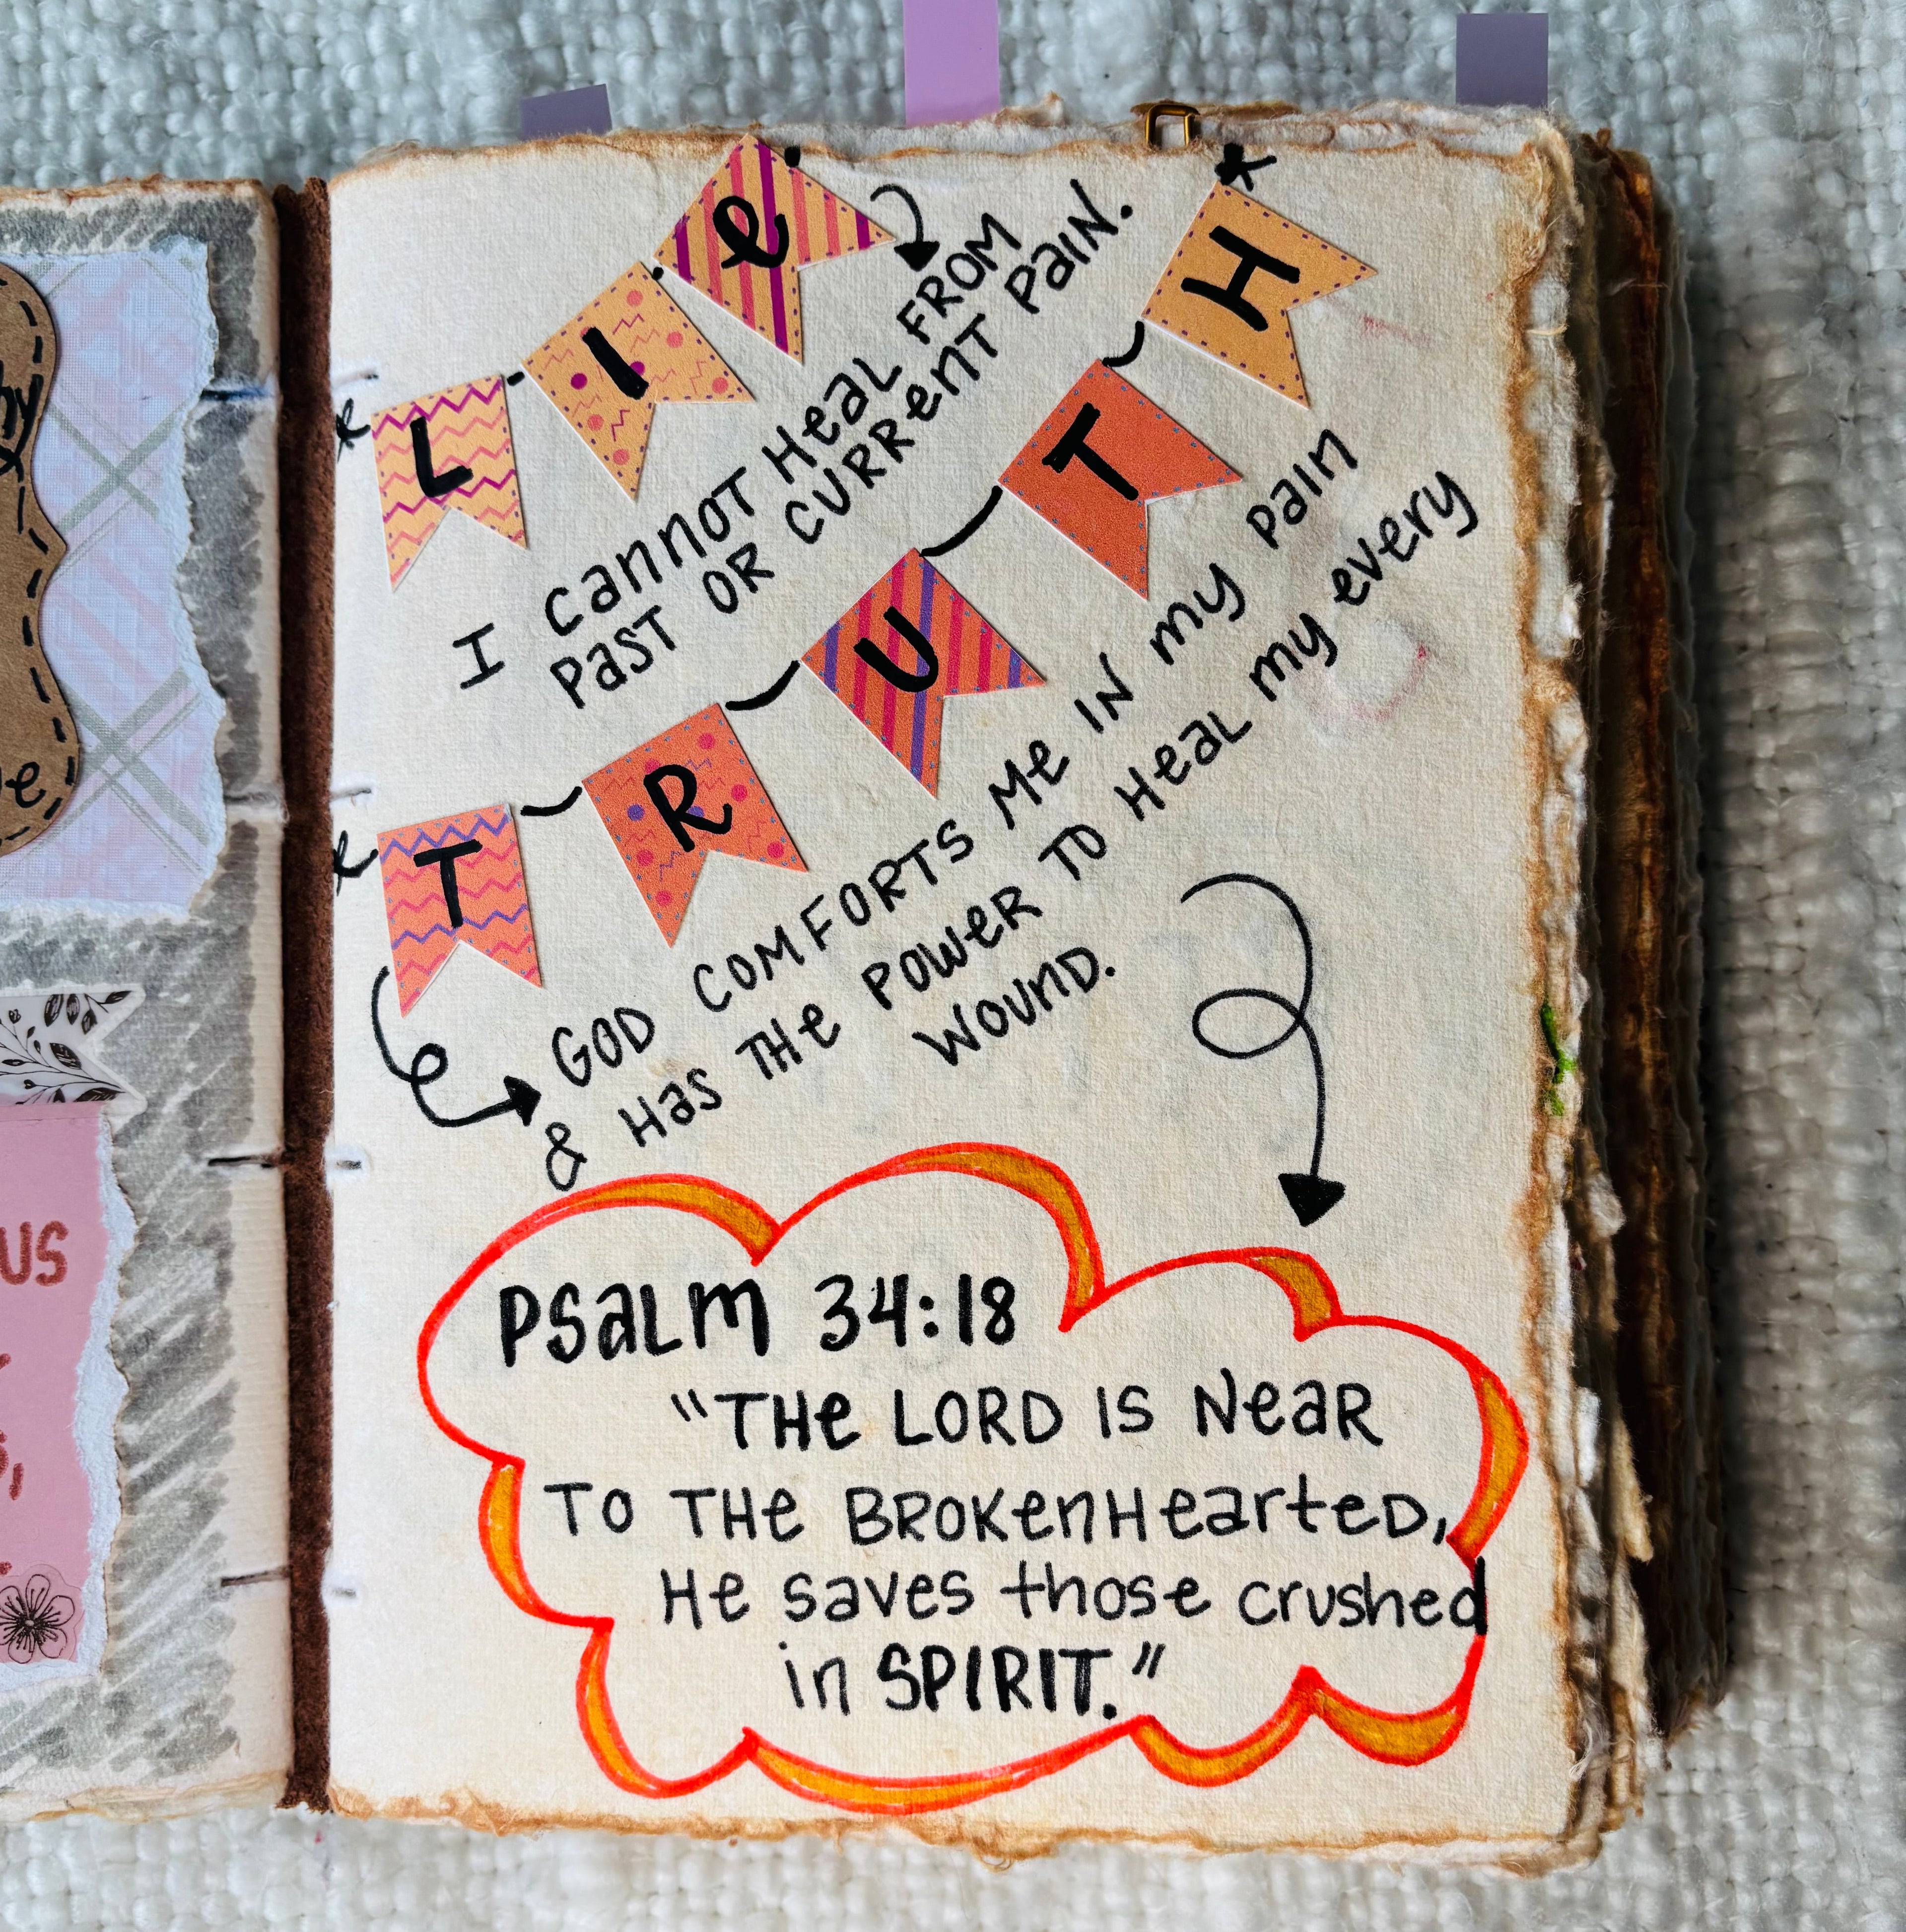 LIe
I cannot Heal FROM
Past OR CURRent Pain.
TRUTH
GOD COMFORTS Me IN my pain
& Has THe POWeR TO Heal my every
WOUnD.
PSaLm 34:18
"THe LORD IS NeaR
TO THe BROKenHearteD,
He saves those crushed
in SPIRIT."
US